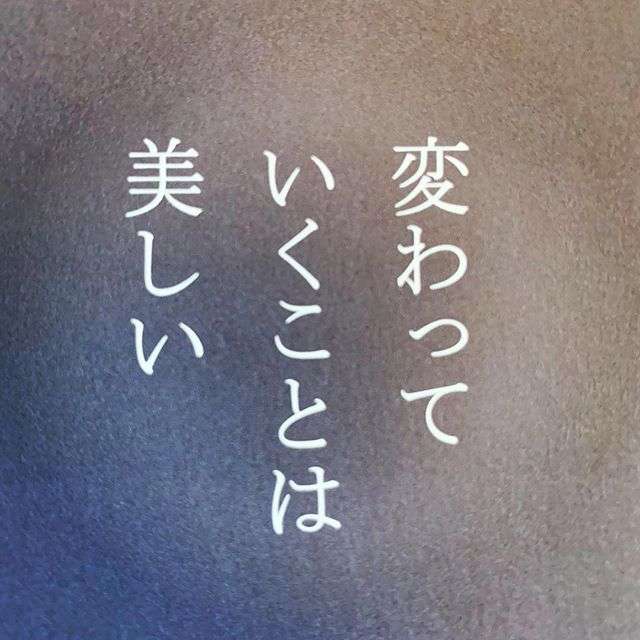 変わって
いくことは
美しい